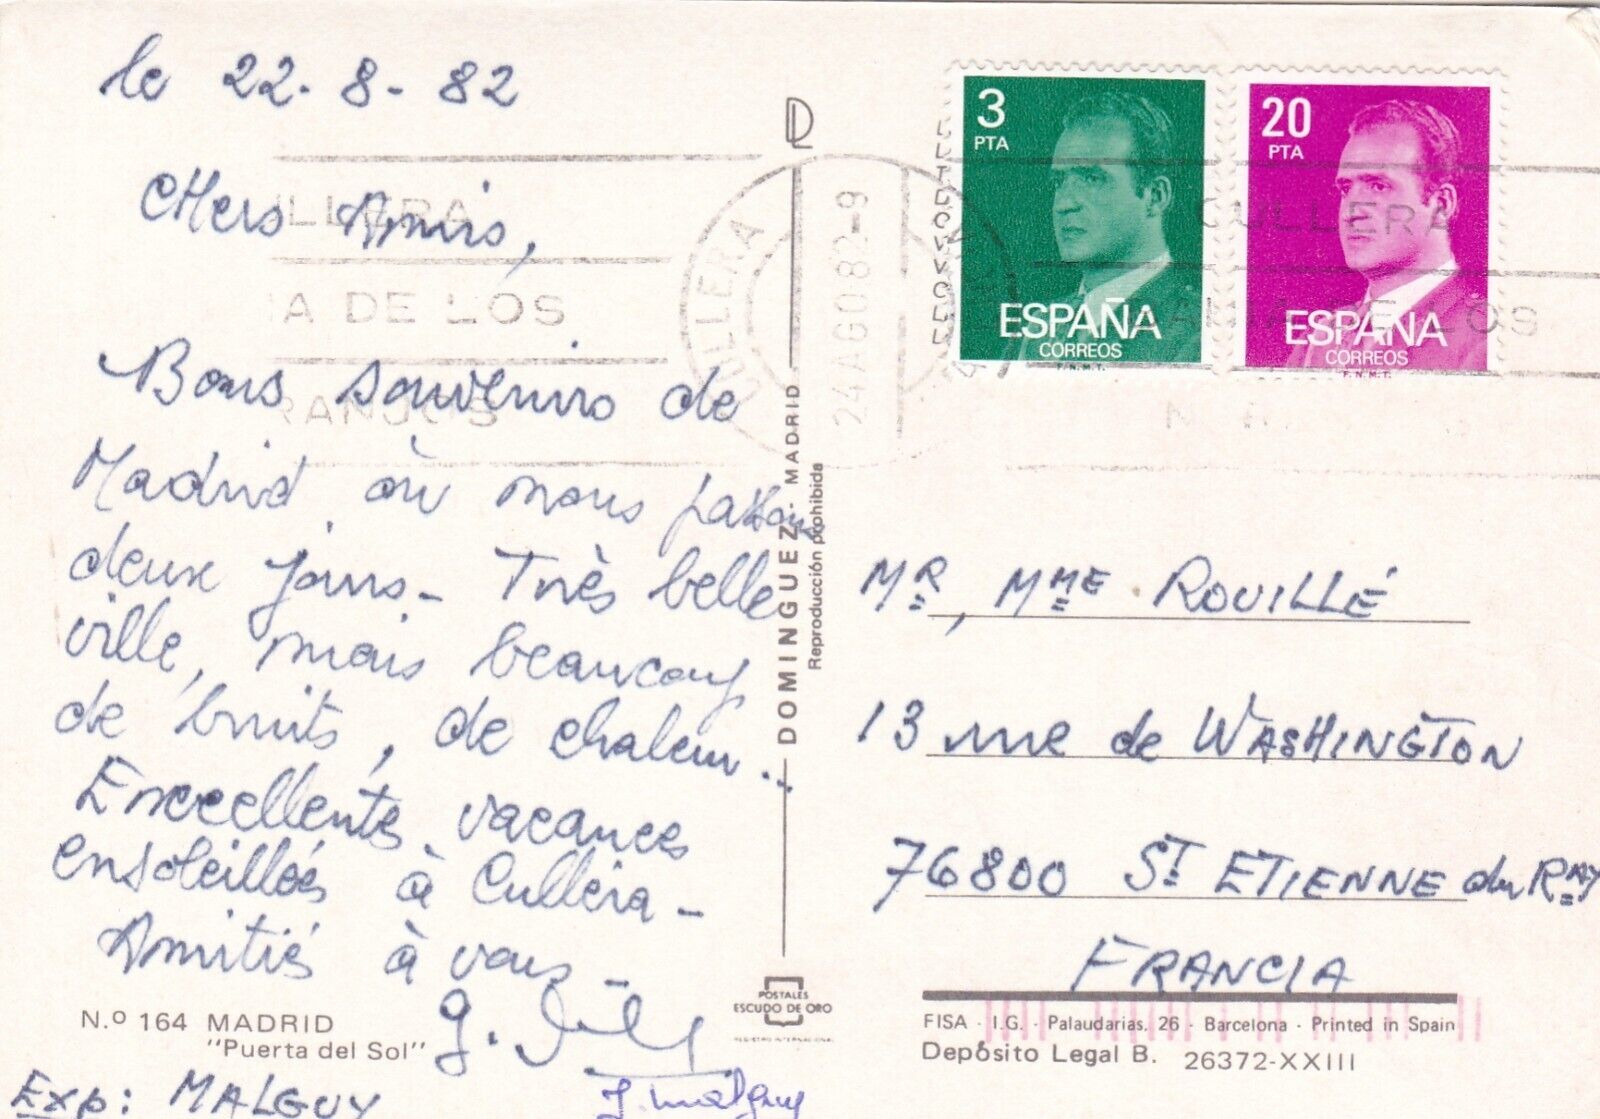 le 22.8-82
CHers Amis,
Bons souvenirs de
Madrid où nous passons
deux jours - Très belle
ville, mais beaucoup
de bruits, de chaleur..
Excellentes vacances
ensoleillées à Culléra -
Amitiés à vous -
N.º 164 MADRID
"Puerta del Sol"
Exp: MALGUY
J. Malguy
DOMINGUEZ · MADRID
Reproducción prohibida
POSTALES
ESCUDO DE ORO
REGISTRO INTERNACIONAL
3
PTA
ESPAÑA
CORREOS
F.N.M.T.
20
PTA
ESPAÑA
CORREOS
F.N.M.T.
CULLERA
24 AGO 82 - 9
CULLERA
DE LOS
CULLERA
NA DE LOS
RANJOS
MR, MME ROUILLÉ
13 rue de WASHINGTON
76800 ST ETIENNE du RAY
FRANCIA
FISA - I.G. - Palaudarias, 26 - Barcelona - Printed in Spain
Depósito Legal B. 26372-XXIII